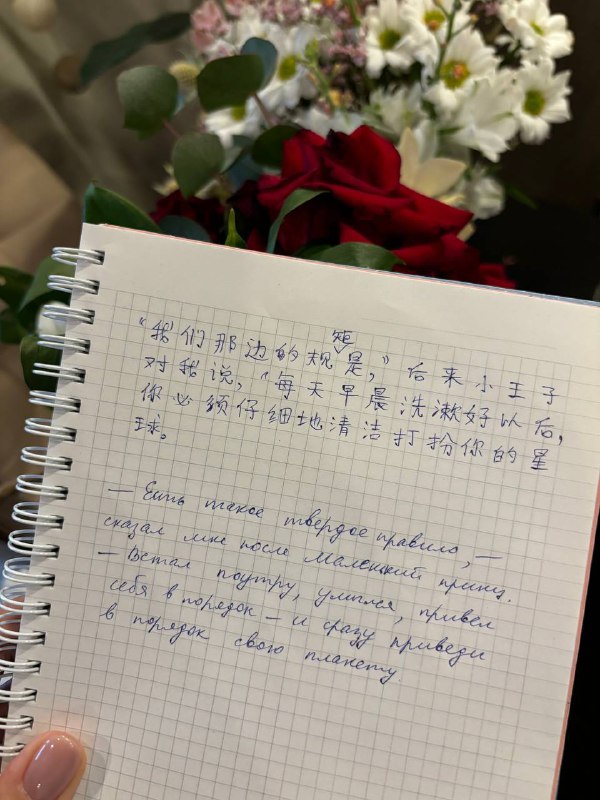 “我们那边的规矩是，”后来小王子
对我说，“每天早晨洗漱好以后，
你必须仔细地清洁打扮你的星
球。
— Есть такое твердое правило, —
сказал мне после Маленький принц.
— Встал поутру, умылся, привел
себя в порядок — и сразу приведи
в порядок свою планету.